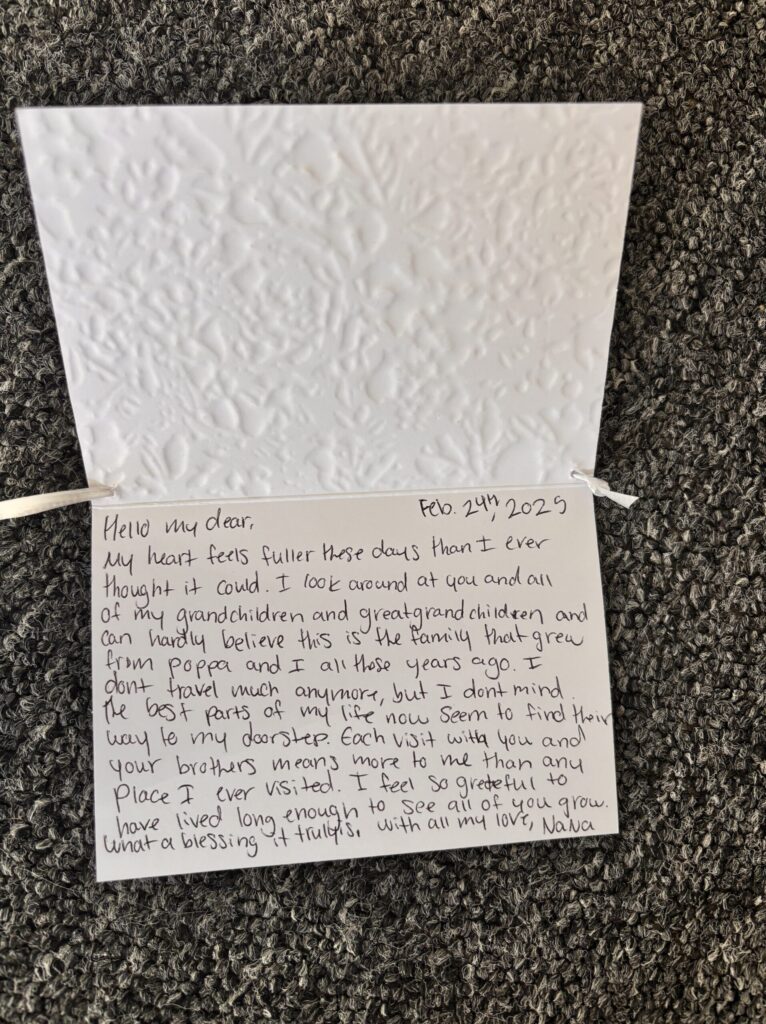 Feb. 24th, 2025
Hello my dear,
My heart feels fuller these days than I ever
thought it could. I look around at you and all
of my grandchildren and greatgrandchildren and
can hardly believe this is the family that grew
from poppa and I all those years ago. I
dont travel much anymore, but I dont mind.
The best parts of my life now seem to find their
way to my doorstep. Each visit with you and
your brothers means more to me than any
place I ever visited. I feel so grateful to
have lived long enough to see all of you grow.
What a blessing it truly is. With all my love, NaNa